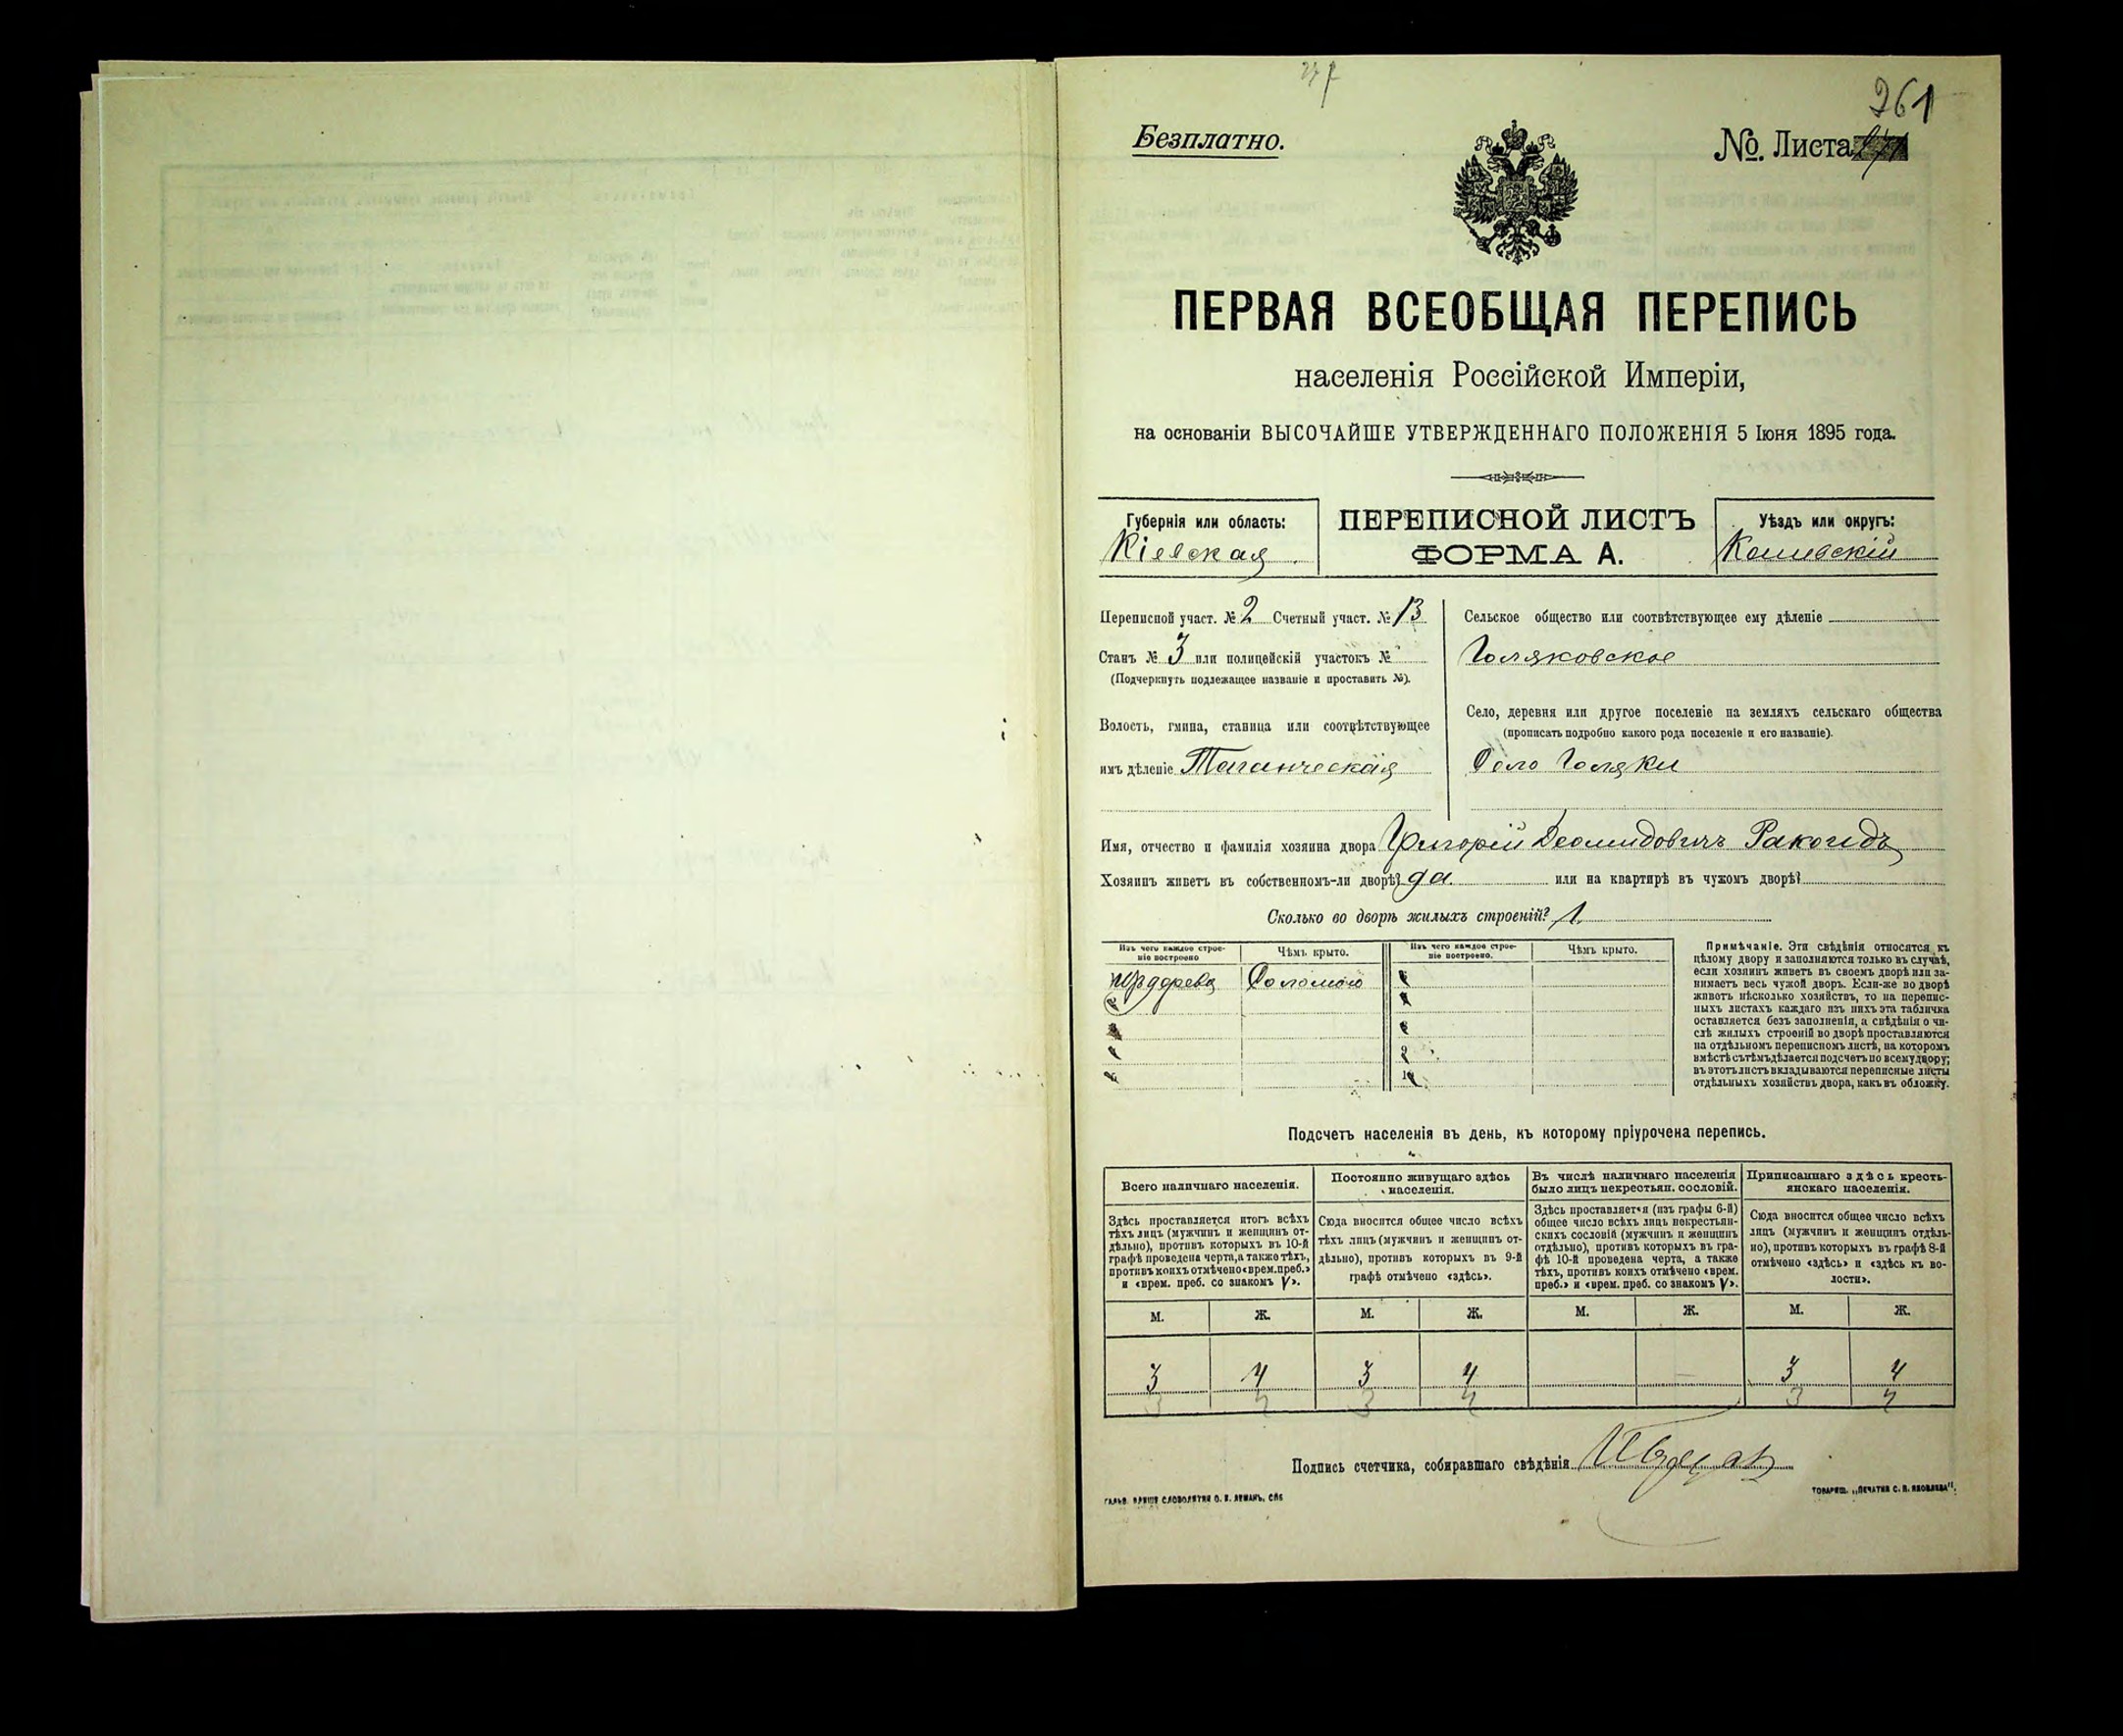 261
Безплатно.
№. Листа
ПЕРВАЯ ВСЕОБЩАЯ ПЕРЕПИСЬ
населенія Россійской Имперіи,
на основаніи ВЫСОЧАЙШЕ УТВЕРЖДЕННАГО ПОЛОЖЕНІЯ 5 Іюня 1895 года.
Губернія или область:
Кіевская
ПЕРЕПИСНОЙ ЛИСТЪ
ФОРМА А.
Уѣздъ или округъ:
Каневскій
Переписной участ. № 2 Счетный участ. № 13
Станъ № 3 или полицейскій участокъ №
(Подчеркнуть подлежащее названіе и проставить №).
Волость, гмина, станица или соотвѣтствующее
имъ дѣленіе Таганческая
Сельское общество или соотвѣтствующее ему дѣленіе
Голяковское
Село, деревня или другое поселеніе на земляхъ сельскаго общества
(прописать подробно какого рода поселеніе и его названіе).
Село Голяки
Имя, отчество и фамилія хозяина двора Григорій Деомидовичъ Ракоидъ
Хозяинъ живетъ въ собственномъ-ли дворѣ? да. или на квартирѣ въ чужомъ дворѣ?
Сколько во дворѣ жилыхъ строеній? 1.
Изъ чего каждое строе-
ніе построено
Чѣмъ крыто.
Изъ чего каждое строе-
ніе построено.
Чѣмъ крыто.
изъ дерева Соломою
Примѣчаніе. Эти свѣдѣнія относятся къ
цѣлому двору и заполняются только въ случаѣ,
если хозяинъ живетъ въ своемъ дворѣ или за-
нимаетъ весь чужой дворъ. Если-же во дворѣ
живетъ нѣсколько хозяйствъ, то на перепис-
ныхъ листахъ каждаго изъ нихъ эта табличка
оставляется безъ заполненія, а свѣдѣнія о чи-
слѣ жилыхъ строеній во дворѣ проставляются
на отдѣльномъ переписномъ листѣ, на которомъ
вмѣстѣ съ тѣмъ дѣлается подсчетъ по всему двору;
въ этотъ листъ вкладываются переписные листы
отдѣльныхъ хозяйствъ двора, какъ въ обложку.
Подсчетъ населенія въ день, къ которому пріурочена перепись.
Всего наличнаго населенія.
Постоянно живущаго здѣсь
населенія.
Въ числѣ наличнаго населенія
было лицъ некрестьян. сословій.
Приписаннаго здѣсь кресть-
янскаго населенія.
Здѣсь проставляется итогъ всѣхъ
тѣхъ лицъ (мужчинъ и женщинъ от-
дѣльно), противъ которыхъ въ 10-й
графѣ проведена черта, а также тѣхъ,
противъ коихъ отмѣчено «врем. преб.»
и «врем. преб. со знакомъ V».
Сюда вносится общее число всѣхъ
тѣхъ лицъ (мужчинъ и женщинъ от-
дѣльно), противъ которыхъ въ 9-й
графѣ отмѣчено «здѣсь».
Здѣсь проставляется (изъ графы 6-й)
общее число всѣхъ лицъ некрестьян-
скихъ сословій (мужчинъ и женщинъ
отдѣльно), противъ которыхъ въ гра-
фѣ 10-й проведена черта, а также
тѣхъ, противъ коихъ отмѣчено «врем.
преб.» и «врем. преб. со знакомъ V».
Сюда вносится общее число всѣхъ
лицъ (мужчинъ и женщинъ отдѣль-
но), противъ которыхъ въ графѣ 8-й
отмѣчено «здѣсь» и «здѣсь въ во-
лости».
М. Ж. М. Ж. М. Ж. М. Ж.
3 4 3 4 3 4
3 4 3 4 3 4
Подпись счетчика, собиравшаго свѣдѣнія
ГАЛЬВ. КЛИШЕ СЛОВОЛИТНИ О. И. ЛЕМАНЪ, СПБ
ТОВАРИЩ. „ПЕЧАТНЯ С. П. ЯКОВЛЕВА".